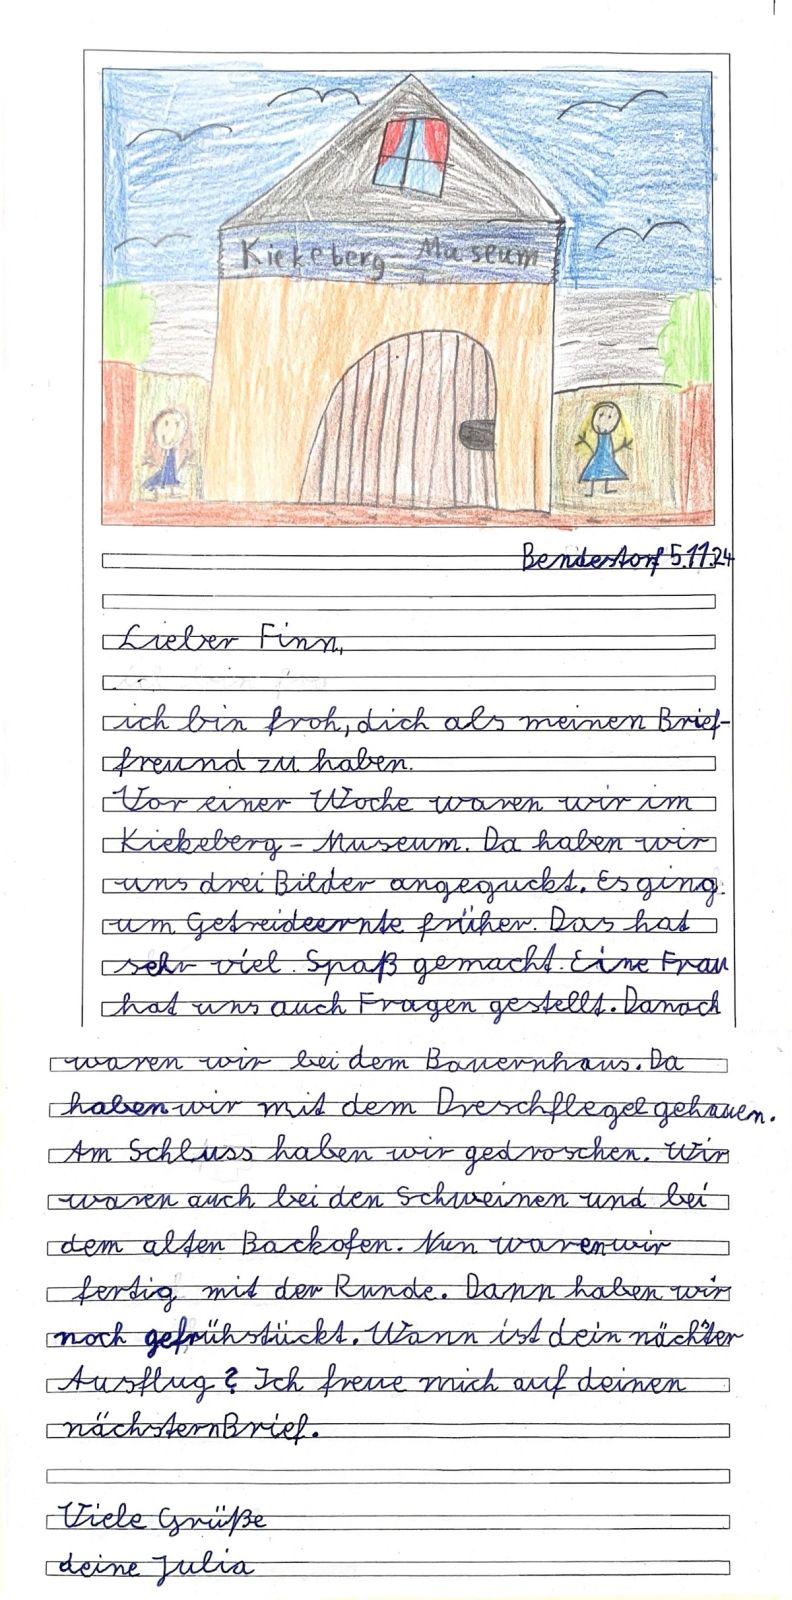 Kiekeberg-Museum
Bendestorf 5.11.24
Lieber Finn,
ich bin froh, dich als meinen Brief-
freund zu haben.
Vor einer Woche waren wir im
Kiekeberg-Museum. Da haben wir
uns drei Bilder angeguckt. Es ging
um Getreideernte früher. Das hat
sehr viel Spaß gemacht. Eine Frau
hat uns auch Fragen gestellt. Danach
waren wir bei dem Bauernhaus. Da
haben wir mit dem Dreschflegel gehauen.
Am Schluss haben wir gedroschen. Wir
waren auch bei den Schweinen und bei
dem alten Backofen. Nun waren wir
fertig mit der Runde. Dann haben wir
noch gefrühstückt. Wann ist dein nächster
Ausflug? Ich freue mich auf deinen
nächstern Brief.
Viele Grüße
deine Julia